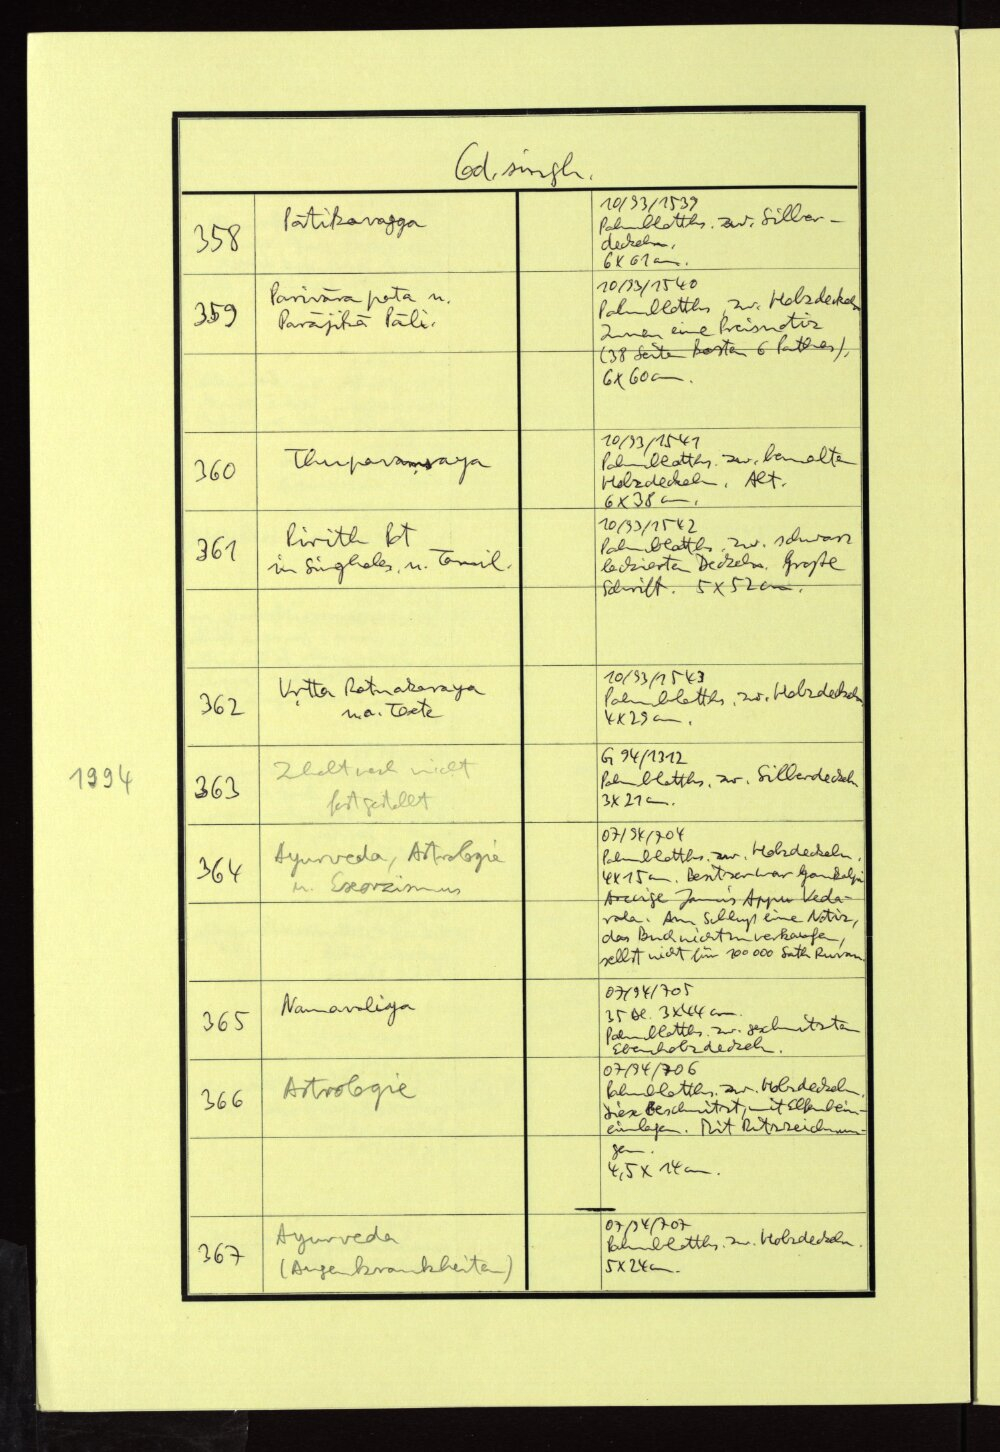 Cod. singh.
358
Pātikavagga
10/93/1539
Palmblatths. zw. Silber-
deckeln.
6 x 61 cm.
359
Parivāra pata u.
Parājikā Pāli.
10/93/1540
Palmblatths. zw. Holzdeckeln
Innen eine Preisnotiz
(38 Seiten kosten 6 Pathas).
6 x 60 cm.
360
Thupavaṃsaya
10/93/1541
Palmblatths. zw. bemalten
Holzdeckeln. Alt.
6 x 38 cm.
361
Pirith Pot
in Singhales. u. Tamil.
10/93/1542
Palmblatths. zw. schwarz
lackierten Deckeln. Große
Schrift. 5 x 52 cm.
362
Vṛtta Ratnakaraya
u.a. Texte
10/93/1543
Palmblatths. zw. Holzdeckeln
4 x 29 cm.
1994
363
Inhalt noch nicht
festgestellt
G 94/1312
Palmblatths. zw. Silberdeckeln
3 x 21 cm.
364
Ayurveda, Astrologie
u. Exorzismus
07/94/704
Palmblatths. zw. Holzdeckeln.
4 x 15 cm. Besitzer war
Appu Veda-
rala. Am Schluß eine Notiz,
das Buch nicht zu verkaufen,
selbst nicht für 100 000 Ruvan.
365
Namavaliya
07/94/705
35 Bl. 3 x 44 cm.
Palmblatths. zw. geschnitzten
Ebenholzdeckeln.
366
Astrologie
07/94/706
Palmblatths. zw. Holzdeckeln.
diese beschnitzt, mit Elfenbein-
einlagen. Mit Ritzzeichnun-
gen.
4,5 x 14 cm.
367
Ayurveda
(Augenkrankheiten)
07/94/707
Palmblatths. zw. Holzdeckeln.
5 x 24 cm.